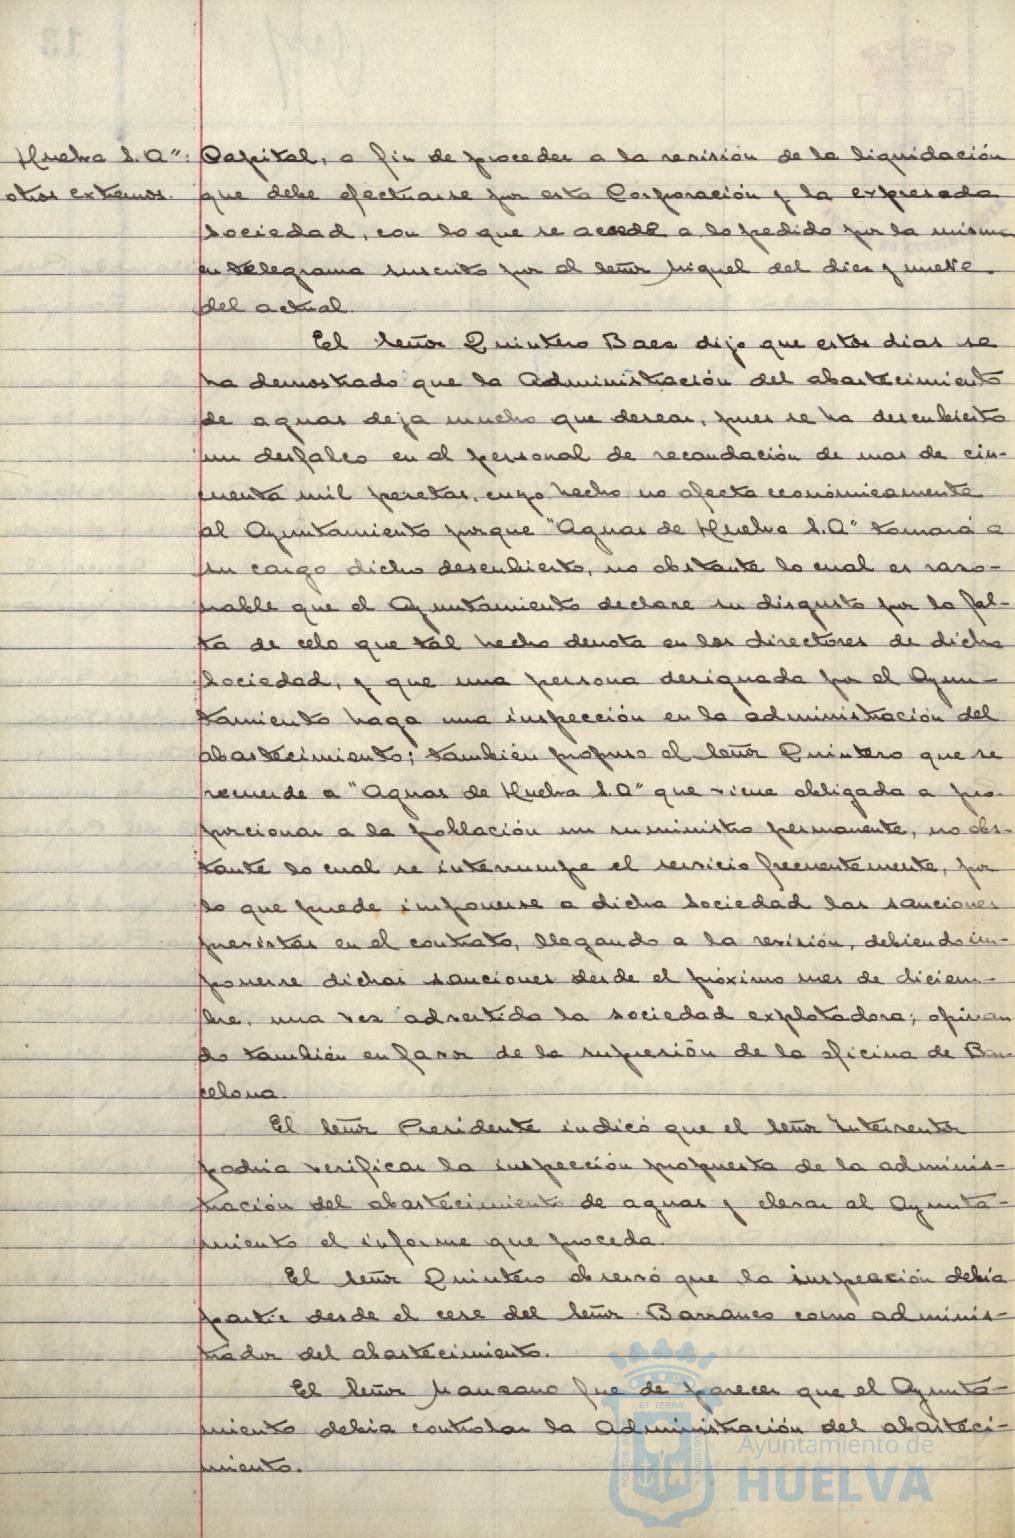 Huelva S.A": Capital, a fin de proceder a la revisión de la liquidación
otros extremos. que debe efectuarse por esta Corporación y la expresada
sociedad, con lo que se accede a lo pedido por la misma
en telegrama suscrito por el señor Miquel del diez y nueve
del actual.
El señor Quintero Baez dijo que estos dias se
ha demostrado que la Administración del abastecimiento
de aguas deja mucho que desear, pues se ha descubierto
un desfalco en el personal de recaudación de mas de cin-
cuenta mil pesetas, cuyo hecho no afecta económicamente
al Ayuntamiento porque "Aguas de Huelva S.A" tomará a
su cargo dicho descubierto, no obstante lo cual es razo-
nable que el Ayuntamiento declare su disgusto por la fal-
ta de celo que tal hecho denota en los directores de dicha
Sociedad, y que una persona designada por el Ayun-
tamiento haga una inspección en la administración del
abastecimiento; también propuso el señor Quintero que se
recuerde a "Aguas de Huelva S.A" que viene obligada a pro-
porcionar a la población un suministro permanente, no obs-
tante lo cual se interrumpe el servicio frecuentemente, por
lo que puede imponerse a dicha Sociedad las sanciones
previstas en el contrato, llegando a la revisión, debiendo im-
ponerse dichas sanciones desde el próximo mes de diciem-
bre, una vez advertida la sociedad explotadora; opinan
do también en favor de la supresión de la oficina de Bar-
celona.
El señor Presidente indicó que el señor Interventor
podria verificar la inspección propuesta de la adminis-
tración del abastecimiento de aguas y elevar al Ayunta-
miento el informe que proceda.
El señor Quintero observó que la inspección debia
partir desde el cese del señor Barranco como adminis-
trador del abastecimiento.
El señor Manzano fue de parecer que el Ayunta-
miento debia controlar la Administración del abasteci-
miento.
Ayuntamiento de
HUELVA